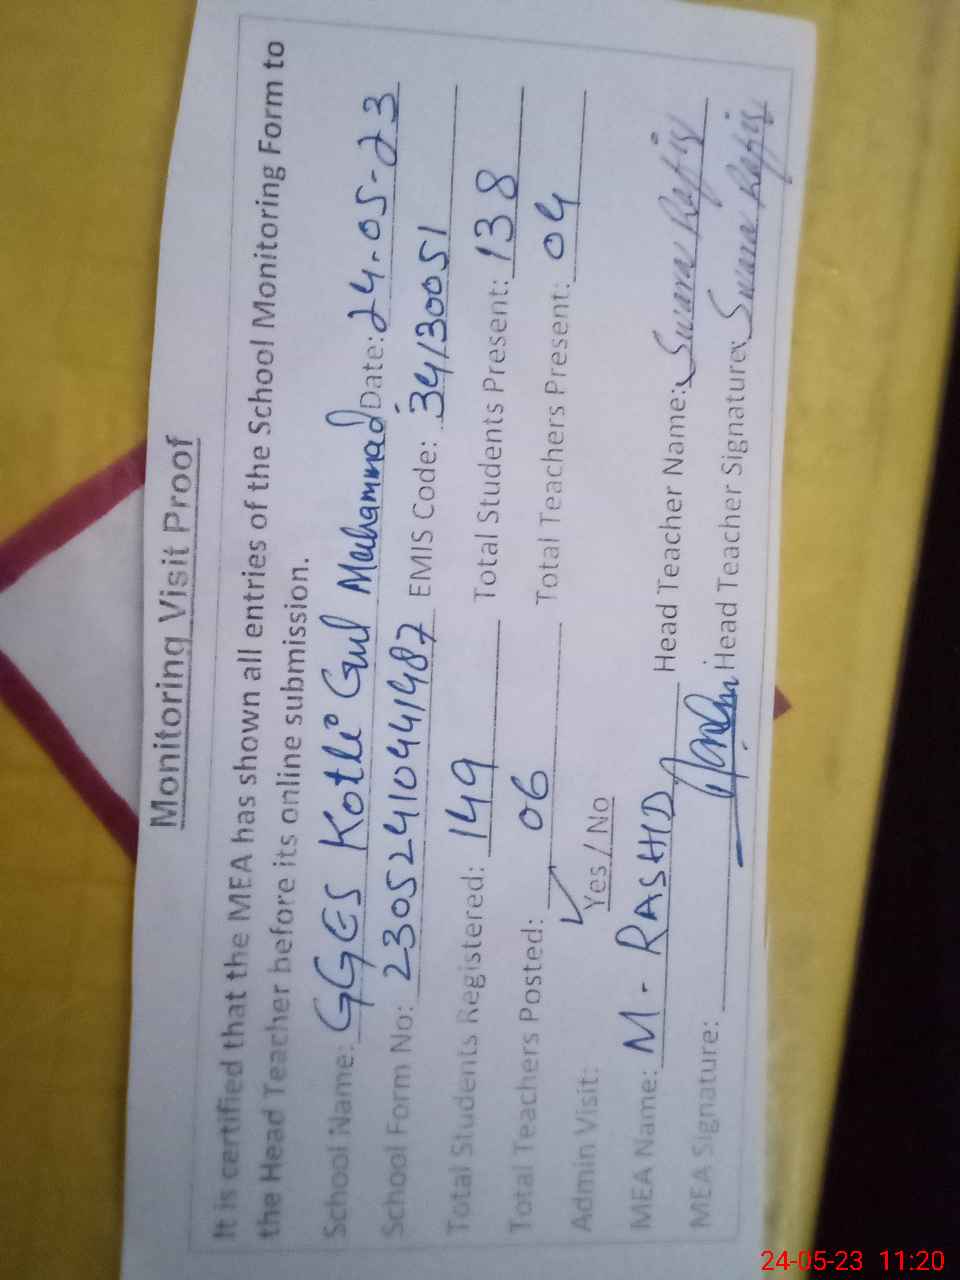 Monitoring Visit Proof
It is certified that the MEA has shown all entries of the School Monitoring Form to
the Head Teacher before its online submission.
School Name: GGES Kotli Gul Muhammad Date: 24-05-23
School Form No: 23052410441487 EMIS Code: 34130051
Total Students Registered: 149 Total Students Present: 138
Total Teachers Posted: 06 Total Teachers Present: 04
Admin Visit: Yes / No
MEA Name: M - RASHID Head Teacher Name:
MEA Signature: Head Teacher Signature:
24-05-23 11:20